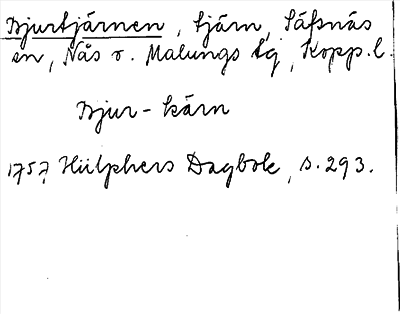 Bjurtjärnen, tjärn, Säfsnäs
en, Nås o. Malungs tg, Kopp. l.
Bjur-kärn
1757, Hülphers Dagbok, s. 293.